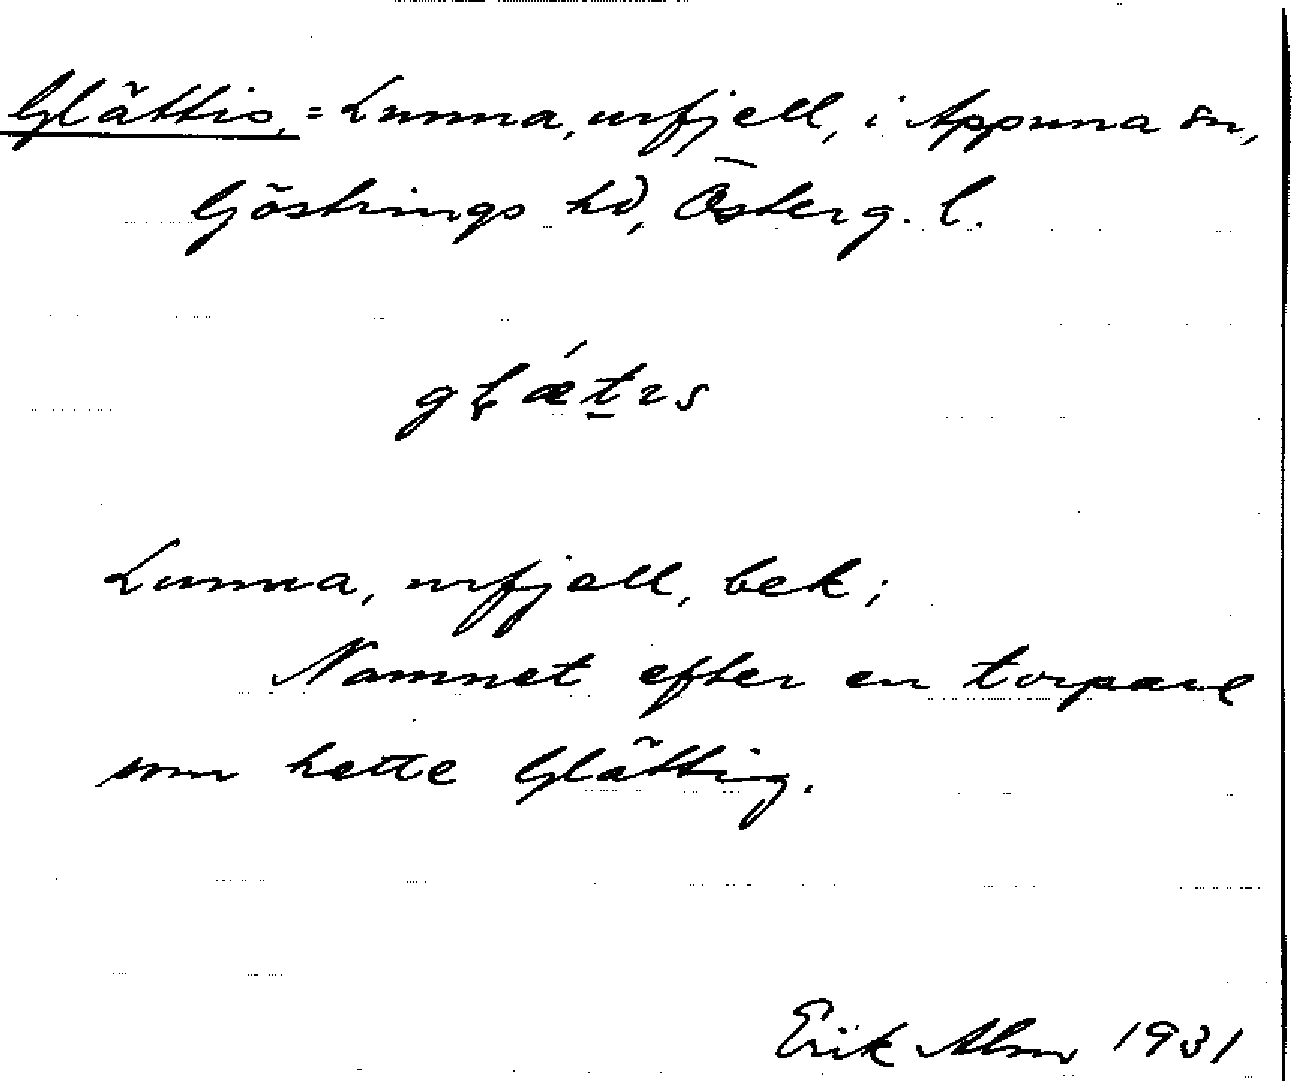 Glättis, = Lunna, urfjell, i Appuna sn,
Göstrings hd, Österg. l.
Lunna, urfjell, bek;
Namnet efter en torpare
som hette Glätting.
Erik Alm 1931